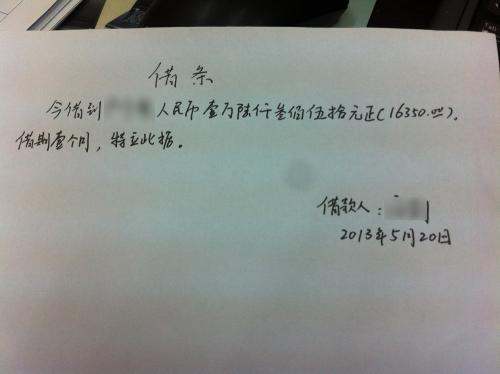 借条
今借到 人民币壹万陆仟叁佰伍拾元正(16350.00).
借期壹个月，特立此据。
借款人：
2013年5月20日